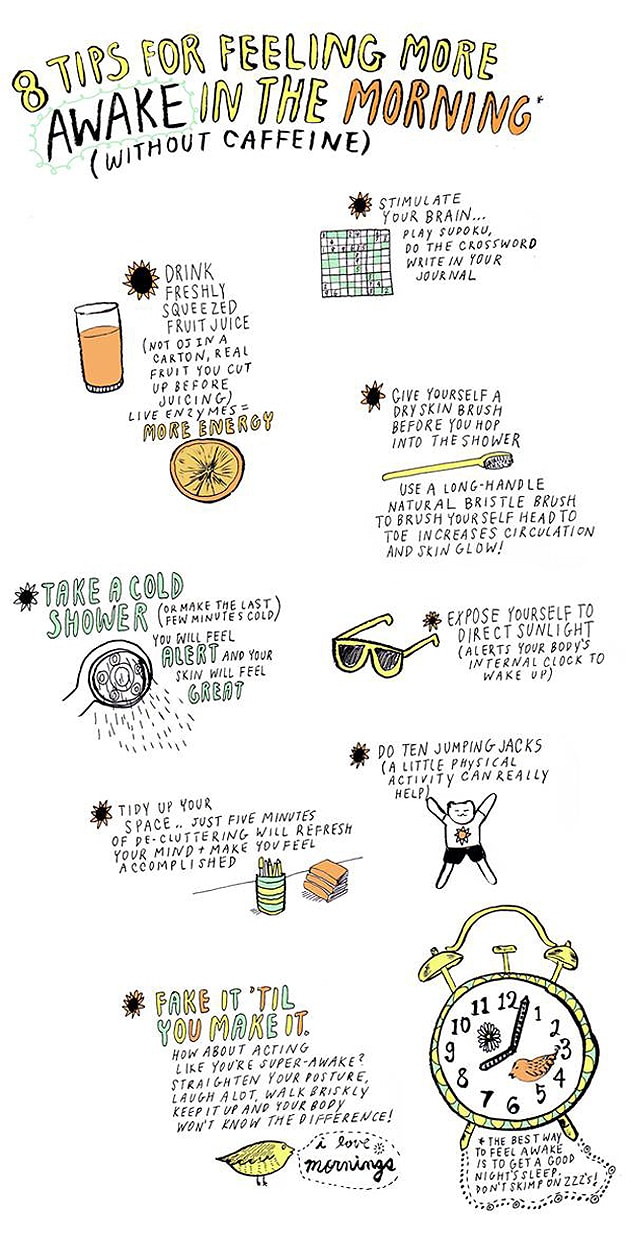 8 TIPS FOR FEELING MORE
AWAKE IN THE MORNING*
(WITHOUT CAFFEINE)
STIMULATE
YOUR BRAIN...
PLAY SUDOKU,
DO THE CROSSWORD
WRITE IN YOUR
JOURNAL
DRINK
FRESHLY
SQUEEZED
FRUIT JUICE
(NOT OJ IN A
CARTON, REAL
FRUIT YOU CUT
UP BEFORE
JUICING)
LIVE ENZYMES =
MORE ENERGY
GIVE YOURSELF A
DRY SKIN BRUSH
BEFORE YOU HOP
INTO THE SHOWER
USE A LONG-HANDLE
NATURAL BRISTLE BRUSH
TO BRUSH YOURSELF HEAD TO
TOE INCREASES CIRCULATION
AND SKIN GLOW!
TAKE A COLD
SHOWER (OR MAKE THE LAST
FEW MINUTES COLD)
YOU WILL FEEL
ALERT AND YOUR
SKIN WILL FEEL
GREAT
EXPOSE YOURSELF TO
DIRECT SUNLIGHT
(ALERTS YOUR BODY'S
INTERNAL CLOCK TO
WAKE UP)
DO TEN JUMPING JACKS
(A LITTLE PHYSICAL
ACTIVITY CAN REALLY
HELP)
TIDY UP YOUR
SPACE.. JUST FIVE MINUTES
OF DE-CLUTTERING WILL REFRESH
YOUR MIND + MAKE YOU FEEL
ACCOMPLISHED
FAKE IT 'TIL
YOU MAKE IT.
HOW ABOUT ACTING
LIKE YOU'RE SUPER-AWAKE?
STRAIGHTEN YOUR POSTURE,
LAUGH A LOT, WALK BRISKLY
KEEP IT UP AND YOUR BODY
WON'T KNOW THE DIFFERENCE!
i love
mornings
12
11 1
10 2
9 3
8 4
7 5
6
* THE BEST WAY
TO FEEL AWAKE
IS TO GET A GOOD
NIGHT'S SLEEP.
DON'T SKIMP ON ZZZ'S!